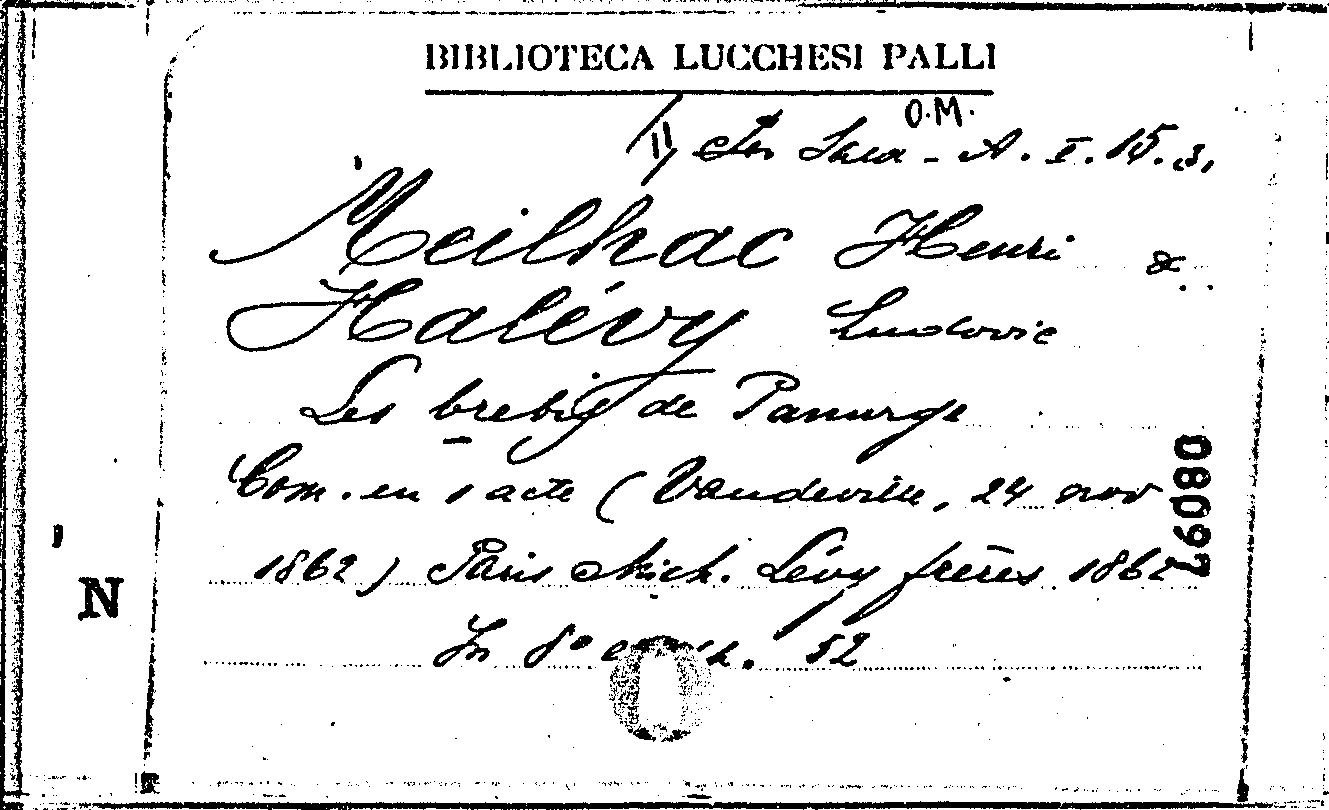 BIBLIOTECA LUCCHESI PALLI
O.M.
Sala - A. I. 15. 3.
Meilhac Henri &
Halévy Ludovic
Les brebis de Panurge
Com. en 1 acte (Vaudeville, 24 nov
1862) Paris Mich. Lévy frères 1862
In 8° 52
76080
N